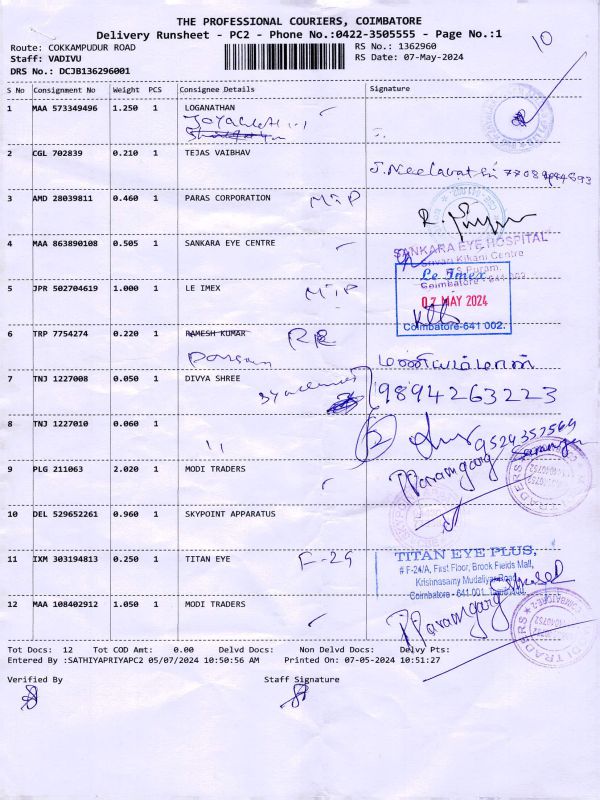 THE PROFESSIONAL COURIERS, COIMBATORE
Delivery Runsheet - PC2 - Phone No.:0422-3505555 - Page No.:1
10
Route: COKKAMPUDUR ROAD
RS No.: 1362960
Staff: VADIVU
RS Date: 07-May-2024
DRS No.: DCJB136296001
S No Consignment No Weight PCS Consignee Details Signature
1 MAA 573349496 1.250 1 LOGANATHAN
2 CGL 702839 0.210 1 TEJAS VAIBHAV
J. Neelavathi
3 AMD 28039811 0.460 1 PARAS CORPORATION
4 MAA 863890108 0.505 1 SANKARA EYE CENTRE
SANKARA EYE HOSPITAL
Coimbatore - 641 002
5 JPR 502704619 1.000 1 LE IMEX
Le Imex
07 MAY 2024
Coimbatore-641 002.
6 TRP 7754274 0.220 1 RAMESH KUMAR
7 TNJ 1227008 0.050 1 DIVYA SHREE
9894263223
8 TNJ 1227010 0.060 1
2
9524357569
9 PLG 211063 2.020 1 MODI TRADERS
10 DEL 529652261 0.960 1 SKYPOINT APPARATUS
11 IXM 303194813 0.250 1 TITAN EYE F-29
TITAN EYE PLUS,
# F-24/A, First Floor, Brook Fields Mall,
Krishnasamy Mudaliyar Road,
Coimbatore - 641 001.
12 MAA 108402912 1.050 1 MODI TRADERS
Tot Docs: 12 Tot COD Amt: 0.00 Delvd Docs: Non Delvd Docs: Delvy Pts:
Entered By :SATHIYAPRIYAPC2 05/07/2024 10:50:56 AM Printed On: 07-05-2024 10:51:27
Verified By Staff Signature